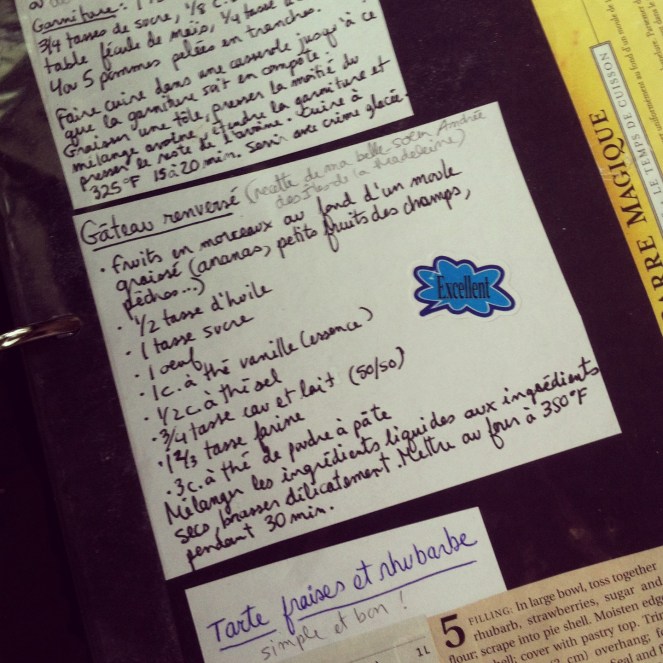 Garniture :
3/4 tasses de sucre, 1/8 c.
table fécule de maïs, 1/4 tasse
4 ou 5 pommes pelées en tranches.
Faire cuire dans une casserole jusqu'à ce
que la garniture soit en compote.
Graisser une tôle, presser la moitié du
mélange avoine, étendre la garniture et
presser le reste de l'avoine. Cuire à
325°F 15 à 20 min. Servir avec crème glacée.
Gâteau renversé (recette de ma belle-soeur Andrée
des Îles de la Madeleine)
• Fruits en morceaux au fond d'un moule
graissé (ananas, petits fruits des champs,
pêches...)
• 1/2 tasse d'huile
• 1 tasse sucre
• 1 oeuf
• 1 c. à thé vanille (essence)
• 1/2 c. à thé sel
• 3/4 tasse eau et lait (50/50)
• 1 2/3 tasse farine
• 3 c. à thé de poudre à pâte
Mélanger les ingrédients liquides aux ingrédients
secs, brasser délicatement. Mettre au four à 350°F
pendant 30 min.
Excellent
Tarte fraises et rhubarbe
simple et bon !
1 L
5 FILLING: In large bowl, toss together
rhubarb, strawberries, sugar and
flour; scrape into pie shell. Moisten edge
shell; cover with pastry top. Trim
cm) overhang; fo
RRE MAGIQUE
LE TEMPS DE CUISSON